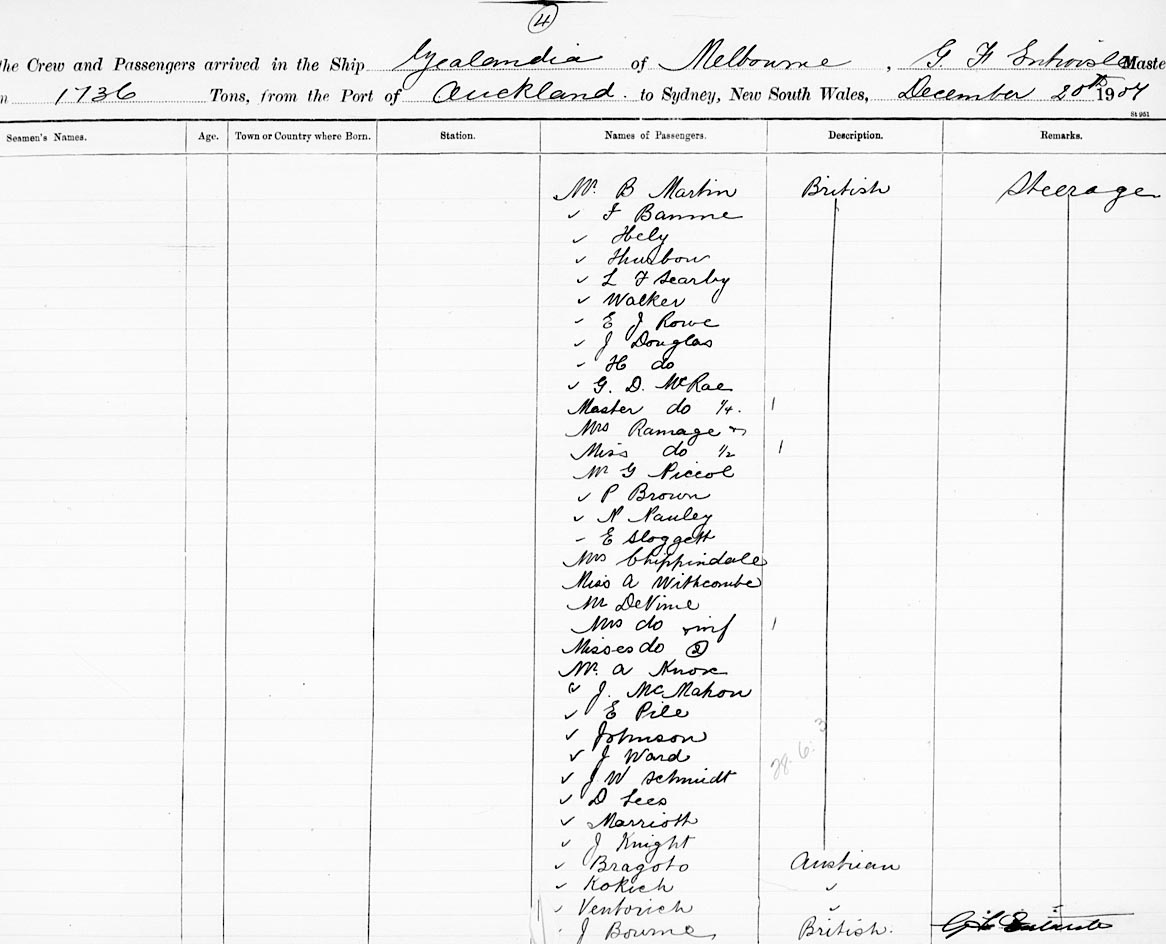 4
the Crew and Passengers arrived in the Ship Zealandia of Melbourne, G. F. Entwisle Maste
n 1736 Tons, from the Port of Auckland to Sydney, New South Wales, December 20th 1907
St 951
Seamen's Names. Age. Town or Country where Born. Station. Names of Passengers. Description. Remarks.
Mr. B Martin British Steerage
✓ F Banme
✓ Hely
✓ Thurbow
✓ L F Searby
✓ Walker
✓ E J Rowe
✓ J Douglas
✓ H do
✓ G. D. McRae
Master do 1/4. 1
Mrs Ramage
Miss do 1/2 1
Mr G Niccol
✓ P Brown
✓ N Nauley
✓ E Sloggett
Mrs Chippindale
Miss A Withcombe
Mr DeVine
Mrs do inf 1
Misses do 2
Mr. A Knox
✓ J. McMahon
✓ E Pile
✓ Johnson
✓ J Ward
✓ J W Schmidt
28. 6. 3
✓ D Lees
✓ Marrioth
✓ J Knight
✓ Bragoto Austrian
✓ Kokich ✓
✓ Ventorich ✓
J Bourne British.